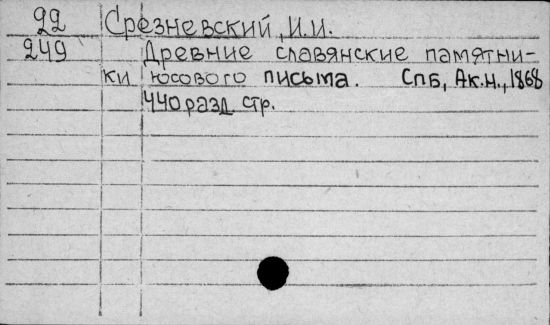 22 Срезневский, И.И.
249 Древние славянские памятни-
ки юсового письма. Спб, Ак.н., 1868
440 разд стр.